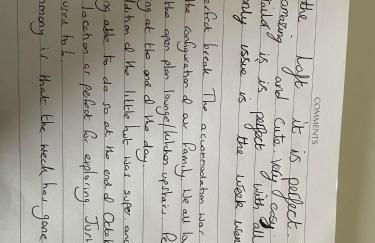 COMMENTS
the loft it is perfect.
amazing and cute very easy.
is is perfect with all
only issue is the week wen
erfect break. The accommodation was
the configuration of our family. We all lo
the open plan lounge/kitchen upstairs. Pe
ng at the end of the day.
lution of the little hut was super and
ng able to do so at the end of Octob
location as perfect for exploring Jur
used to
mmony is that the week has gone